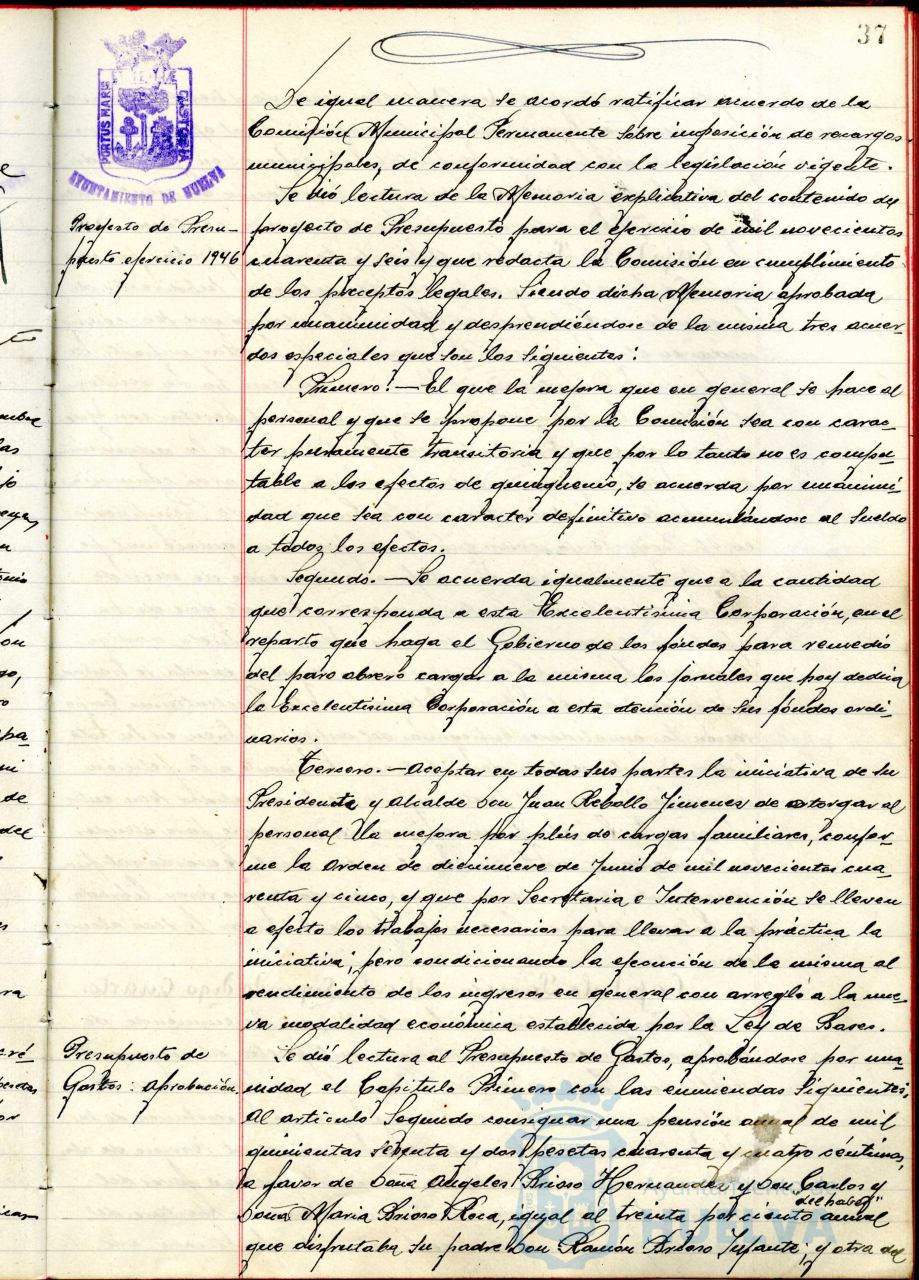 37
PORTUS MARIS
ET TERRAE
CUSTODIA
AYUNTAMIENTO DE HUELVA
De igual manera se acordó ratificar acuerdo de la
Comisión Municipal Permanente sobre imposición de recargos
municipales, de conformidad con la legislación vigente.
Proyecto de Presu-
puesto ejercicio 1946
Se dió lectura de la Memoria explicativa del contenido del
proyecto de Presupuesto para el ejercicio de mil novecientos
cuarenta y seis y que redacta la Comisión en cumplimiento
de los preceptos legales. Siendo dicha Memoria aprobada
por unanimidad y desprendiéndose de la misma tres acuer-
dos especiales que son los siguientes:
Primero.- El que la mejora que en general se hace al
personal y que se propone por la Comisión sea con carac-
ter puramente transitoria y que por lo tanto no es compu-
table a los efectos de quinquenio, se acuerda por unanimi-
dad que sea con caracter definitivo acumulándose al sueldo
a todos los efectos.
Segundo.- Se acuerda igualmente que a la cantidad
que corresponda a esta Excelentísima Corporación, en el
reparto que haga el Gobierno de los fóndos para remedio
del paro obrero cargar a la misma los jornales que hoy dedica
la Excelentísima Corporación a esta atención de sus fóndos ordi-
narios.
Tercero.- Aceptar en todas sus partes la iniciativa de su
Presidente y Alcalde Don Juan Rebollo Jimenez de otorgar al
personal la mejora por plús de cargas familiares, confor-
me la Orden de diecinueve de Junio de mil novecientos cua-
renta y cinco, y que por Secretaria e Intervención se lleven
a efecto los trabajos necesarios para llevar a la práctica la
iniciativa; pero condicionando la ejecución de la misma al
rendimiento de los ingresos en general con arreglo a la nue-
va modalidad económica establecida por la Ley de Bases.
Presupuesto de
Gastos: aprobación.
Se dió lectura al Presupuesto de Gastos, aprobándose por una-
nidad el Capítulo Primero con las enmiendas siguientes;
Al artículo Segundo consignar una pensión anual de mil
quinientas setenta y dos pesetas cuarenta y cuatro céntimos,
a favor de Doña Angeles Brioso Hernandez y Don Carlos y
"del haber"
Doña Maria Brioso Roca, igual al treinta por ciento anual
que disfrutaba su padre Don Ramón Brioso Infante; y otra del
Ayuntamiento
HUELVA